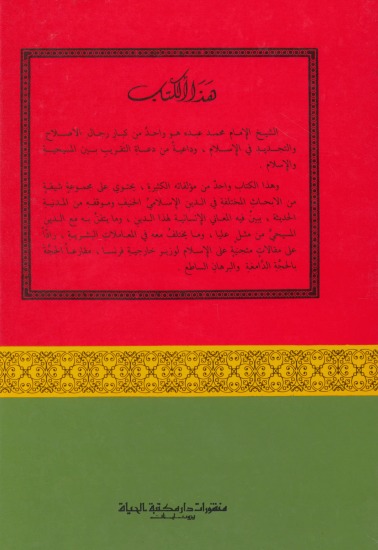 هذا الكتاب
الشيخ الإمام محمد عبده هو واحد من كبار رجال الاصلاح
والتجديد في الإسلام ، وداعية من دعاة التقريب بين المسيحية
والإسلام .
وهذا الكتاب واحد من مؤلفاته الكثيرة ، يحتوي على مجموعة شيقة
من الابحاث المختلفة في الدين الإسلامي الحنيف وموقفه من المدنية
الحديثة ، يبين فيه المعاني الإنسانية لهذا الدين ، وما يتفق به مع الدين
المسيحي من مثل عليا ، وما يختلف معه في المعاملات البشرية ، راداً
على مقالات متجنية على الإسلام لوزير خارجية فرنسا ، مقارعاً الحجة
بالحجة الدامغة والبرهان الساطع
منشورات دار مكتبة الحياة
بيروت - لبنان